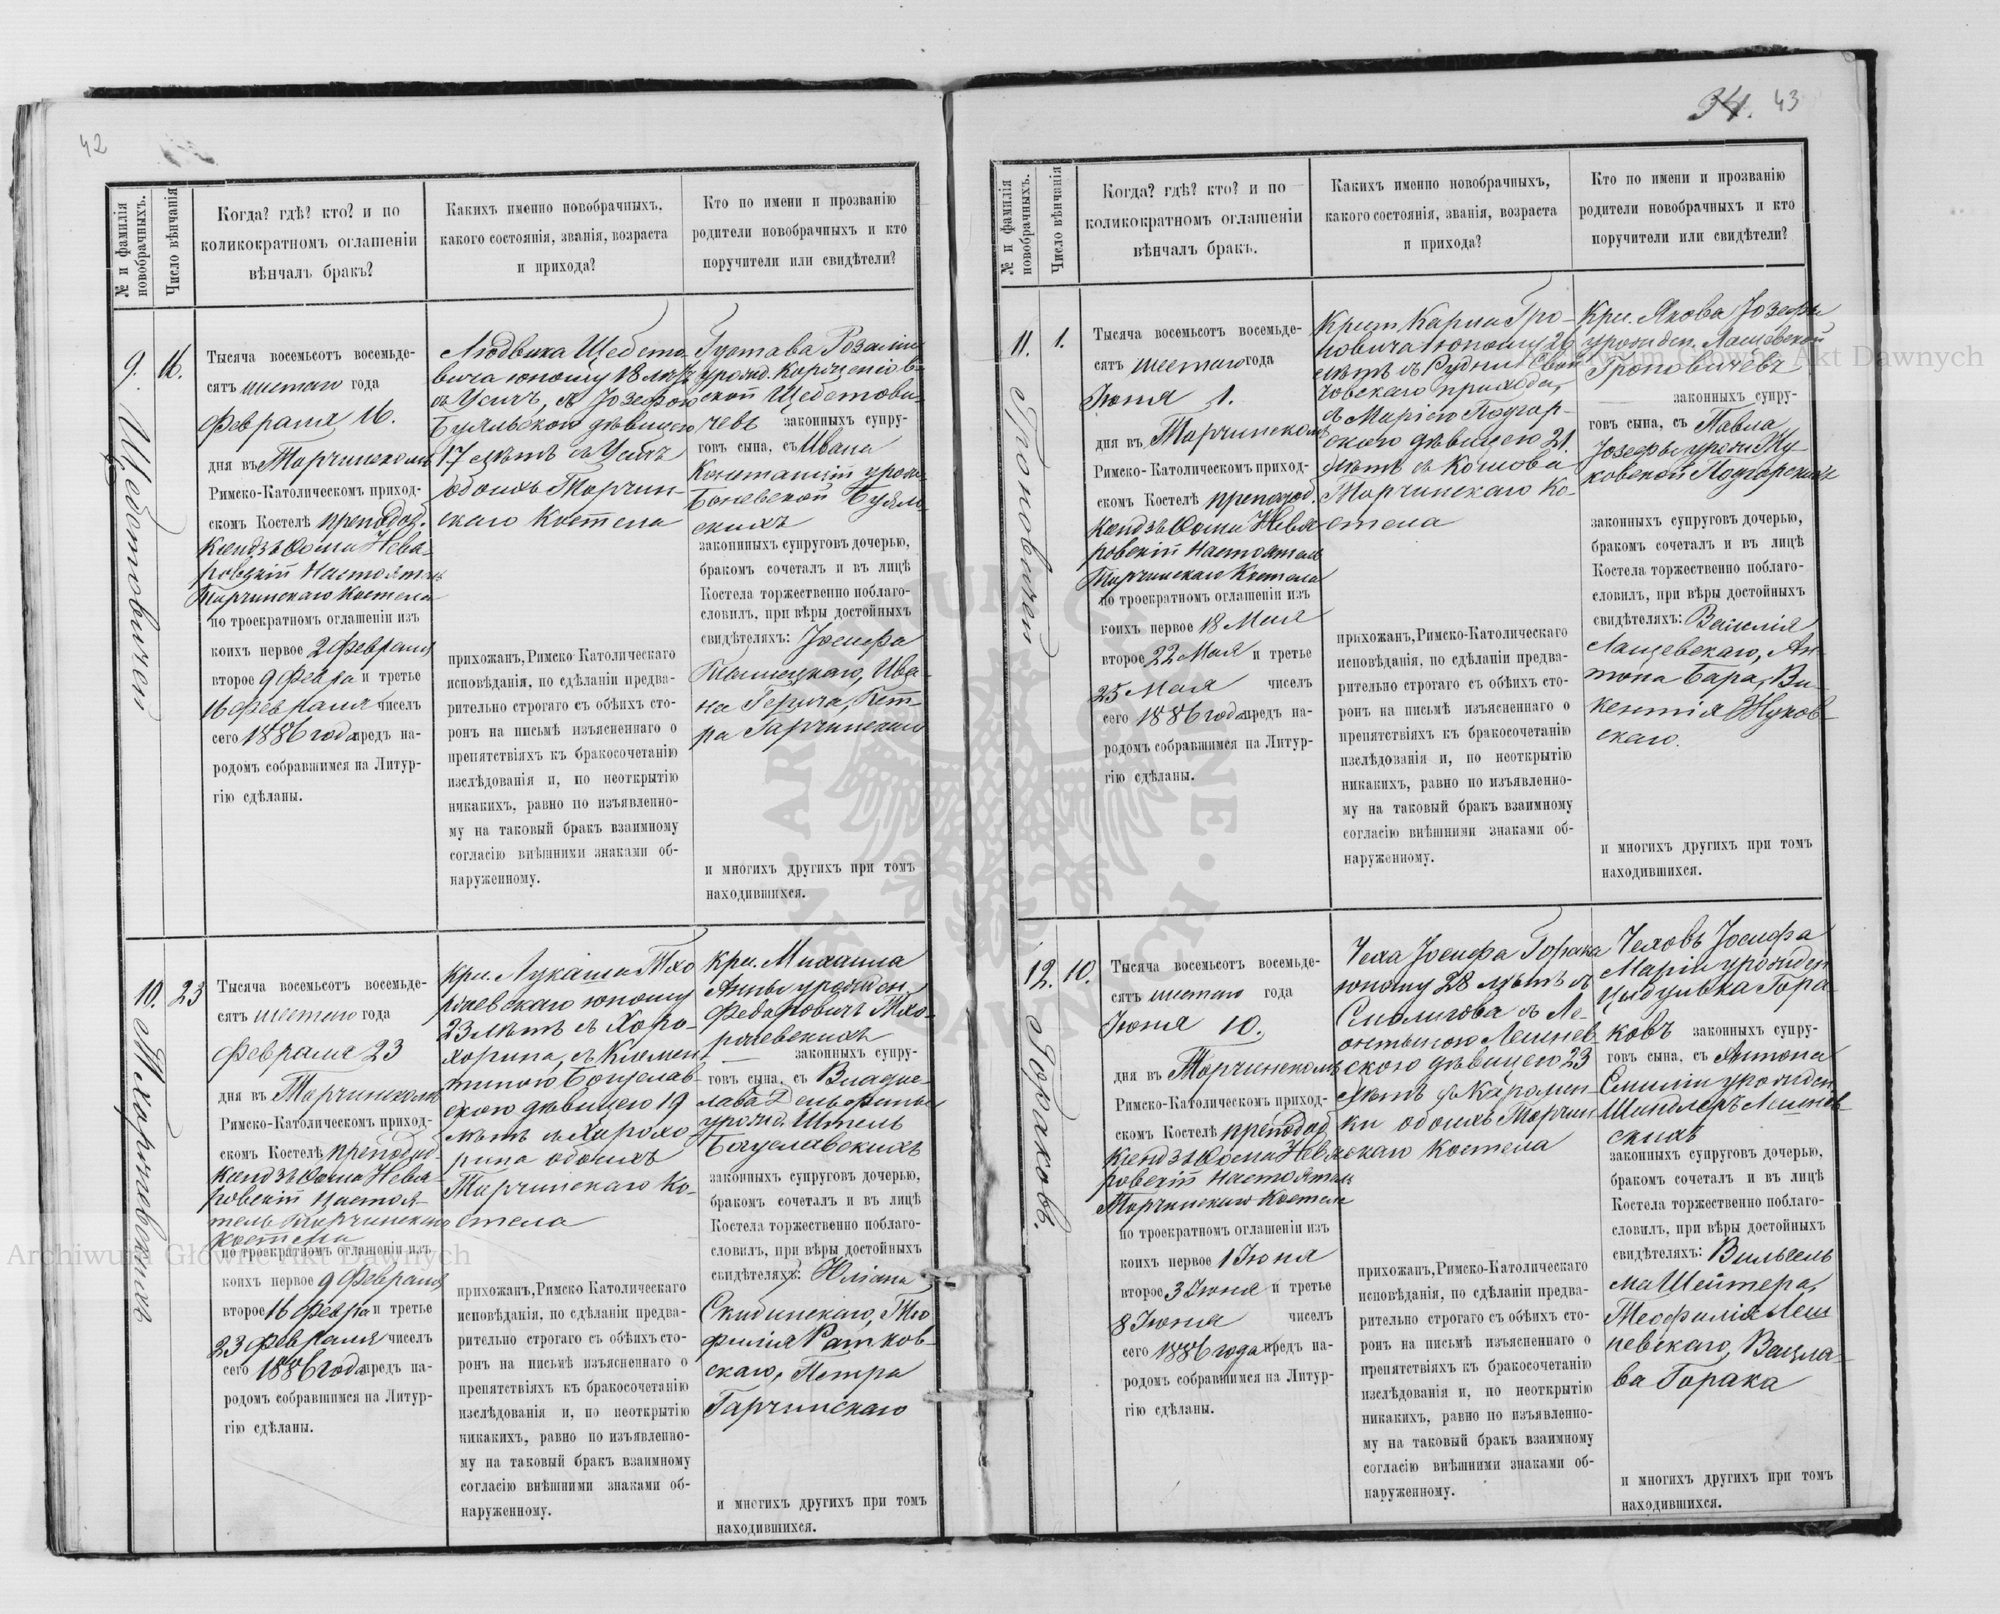 42
№ и фамилія новобрачныхъ.
Число вѣнчанія
Когда? гдѣ? кто? и по
коликократномъ оглашеніи
вѣнчалъ бракъ?
Какихъ именно новобрачныхъ,
какого состоянія, званія, возраста
и прихода?
Кто по имени и прозванію
родители новобрачныхъ и кто
поручители или свидѣтели?
9. Щебетовичей
16.
Тысяча восемьсотъ восемьде-
сятъ шестаго года
Февраля 16.
дня въ Торчинскомъ
Римско-Католическомъ приход-
скомъ Костелѣ преподоб.
Ксендзъ Фома Нева-
ровскій Настоятель
Торчинскаго Костела
по троекратномъ оглашеніи изъ
коихъ первое 2 Февраля
второе 9 Февра и третье
16 Февраля чиселъ
сего 1886 года предъ на-
родомъ собравшимся на Литур-
гію сдѣланы.
Людвика Щебето-
вича юношу 18 лѣтъ
съ Усичъ, съ Іозефою
Бужльскою дѣвицею
17 лѣтъ съ Усичъ
обоихъ Торчин-
скаго Костела
прихожанъ, Римско-Католическаго
исповѣданія, по сдѣланіи предва-
рительно строгаго съ обѣихъ сто-
ронъ на письмѣ изъясненнаго о
препятствіяхъ къ бракосочетанію
изслѣдованія и, по неоткрытію
никакихъ, равно по изъявленно-
му на таковый бракъ взаимному
согласію внѣшними знаками об-
наруженному.
Густава Розаліи
урожд.
ской Щебетови-
чевъ законныхъ супру-
говъ сына, съ Ивана
Констанціи урожд.
скихъ
законныхъ супруговъ дочерью,
бракомъ сочеталъ и въ лицѣ
Костела торжественно поблаго-
словилъ, при вѣры достойныхъ
свидѣтеляхъ: Іосифа
Ива-
на Пет-
ра Гарчинскаго
и многихъ другихъ при томъ
находившихся.
10. Тхоржевскихъ
23
Тысяча восемьсотъ восемьде-
сятъ шестаго года
Февраля 23
дня въ Торчинскомъ
Римско-Католическомъ приход-
скомъ Костелѣ преподоб.
Ксендзъ Фома Нева-
ровскій Настоя-
тель Торчинскаго
Костела
по троекратномъ оглашеніи изъ
коихъ первое 9 Февраля
второе 16 Февра и третье
23 Февраля чиселъ
сего 1886 года предъ на-
родомъ собравшимся на Литур-
гію сдѣланы.
Кре. Лукаша Тхо-
ржевскаго юношу
23 лѣтъ съ Хоро-
хорина, съ Клемен-
тиною Богуслав-
скою дѣвицею 19
лѣтъ съ Хорохо-
рина обоихъ
Торчинскаго Ко-
стела
прихожанъ, Римско Католическаго
исповѣданія, по сдѣланіи предва-
рительно строгаго съ обѣихъ сто-
ронъ на письмѣ изъясненнаго о
препятствіяхъ къ бракосочетанію
изслѣдованія и, по неоткрытію
никакихъ, равно по изъявленно-
му на таковый бракъ взаимному
согласію внѣшними знаками об-
наруженному.
Кре. Михаила
Анны урожден.
Федоровичъ Тхо-
ржевскихъ
законныхъ супру-
говъ сына, съ Владис-
лава Дельфины
урожд. Штель
Богуславскихъ
законныхъ супруговъ дочерью,
бракомъ сочеталъ и въ лицѣ
Костела торжественно поблаго-
словилъ, при вѣры достойныхъ
свидѣтеляхъ: Юліана
Скибинскаго, Тео-
филія Ратков-
скаго, Петра
Гарчинскаго
и многихъ другихъ при томъ
находившихся.
34. 43
№ и фамилія новобрачныхъ.
Число вѣнчанія
Когда? гдѣ? кто? и по
коликократномъ оглашеніи
вѣнчалъ бракъ.
Какихъ именно новобрачныхъ,
какого состоянія, званія, возраста
и прихода?
Кто по имени и прозванію
родители новобрачныхъ и кто
поручители или свидѣтели?
11. Гроновичей
1.
Тысяча восемьсотъ восемьде-
сятъ шестаго года
Іюня 1.
дня въ Торчинскомъ
Римско-Католическомъ приход-
скомъ Костелѣ преподоб.
Ксендзъ Фома Нева-
ровскій Настоятель
Торчинскаго Костела
по троекратномъ оглашеніи изъ
коихъ первое 18 Мая
второе 22 Мая и третье
25 Мая чиселъ
сего 1886 года предъ на-
родомъ собравшимся на Литур-
гію сдѣланы.
Крест. Карла Гро-
новича юношу 26
лѣтъ съ Рудни
прихода,
съ Маріею Подгор-
скою дѣвицею 21
лѣтъ съ Кошова
Торчинскаго Ко-
стела
прихожанъ, Римско-Католическаго
исповѣданія, по сдѣланіи предва-
рительно строгаго съ обѣихъ сто-
ронъ на письмѣ изъясненнаго о
препятствіяхъ къ бракосочетанію
изслѣдованія и, по неоткрытію
никакихъ, равно по изъявленно-
му на таковый бракъ взаимному
согласію внѣшними знаками об-
наруженному.
Кре. Якова Іозефы
урожден. Лащевской
Гроновичевъ
законныхъ супру-
говъ сына, съ Павла
Іозефы урожд. Жу-
ковской Подгорскихъ
законныхъ супруговъ дочерью,
бракомъ сочеталъ и въ лицѣ
Костела торжественно поблаго-
словилъ, при вѣры достойныхъ
свидѣтеляхъ: Василія
Лащевскаго, Ан-
тона Бара, Ви-
кентія Жуков-
скаго.
и многихъ другихъ при томъ
находившихся.
12. Гораковъ.
10.
Тысяча восемьсотъ восемьде-
сятъ шестаго года
Іюня 10.
дня въ Торчинскомъ
Римско-Католическомъ приход-
скомъ Костелѣ преподоб.
Ксендзъ Фома Нева-
ровскій Настоятель
Торчинскаго Костела
по троекратномъ оглашеніи изъ
коихъ первое 1 Іюня
второе 3 Іюня и третье
8 Іюня чиселъ
сего 1886 года предъ на-
родомъ собравшимся на Литур-
гію сдѣланы.
Чеха Іосифа Горака
юношу 28 лѣтъ съ
Смолигова съ Ле-
онтыною Лешнев-
скою дѣвицею 23
лѣтъ съ Каролин-
ки обоихъ Торчин-
скаго Костела
прихожанъ, Римско-Католическаго
исповѣданія, по сдѣланіи предва-
рительно строгаго съ обѣихъ сто-
ронъ на письмѣ изъясненнаго о
препятствіяхъ къ бракосочетанію
изслѣдованія и, по неоткрытію
никакихъ, равно по изъявленно-
му на таковый бракъ взаимному
согласію внѣшними знаками об-
наруженному.
Чеховъ Іосифа
Маріи урожден.
Гора-
ковъ законныхъ супру-
говъ сына, съ Антона
Емиліи урожден.
Шиндлеръ Лешнев-
скихъ
законныхъ супруговъ дочерью,
бракомъ сочеталъ и въ лицѣ
Костела торжественно поблаго-
словилъ, при вѣры достойныхъ
свидѣтеляхъ: Вильгель-
ма Шейтера,
Теофилія Леш-
невскаго, Вацла-
ва Горака
и многихъ другихъ при томъ
находившихся.
Archiwum Główne Akt Dawnych
Archiwum Główne Akt Dawnych